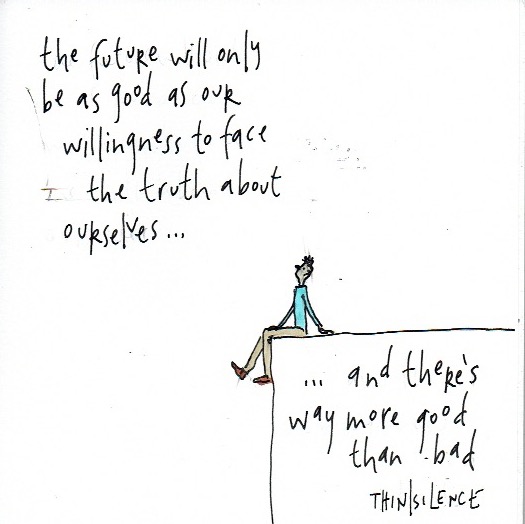 the future will only
be as good as our
willingness to face
the truth about
ourselves...
... and there's
way more good
than bad
THIN|SILENCE